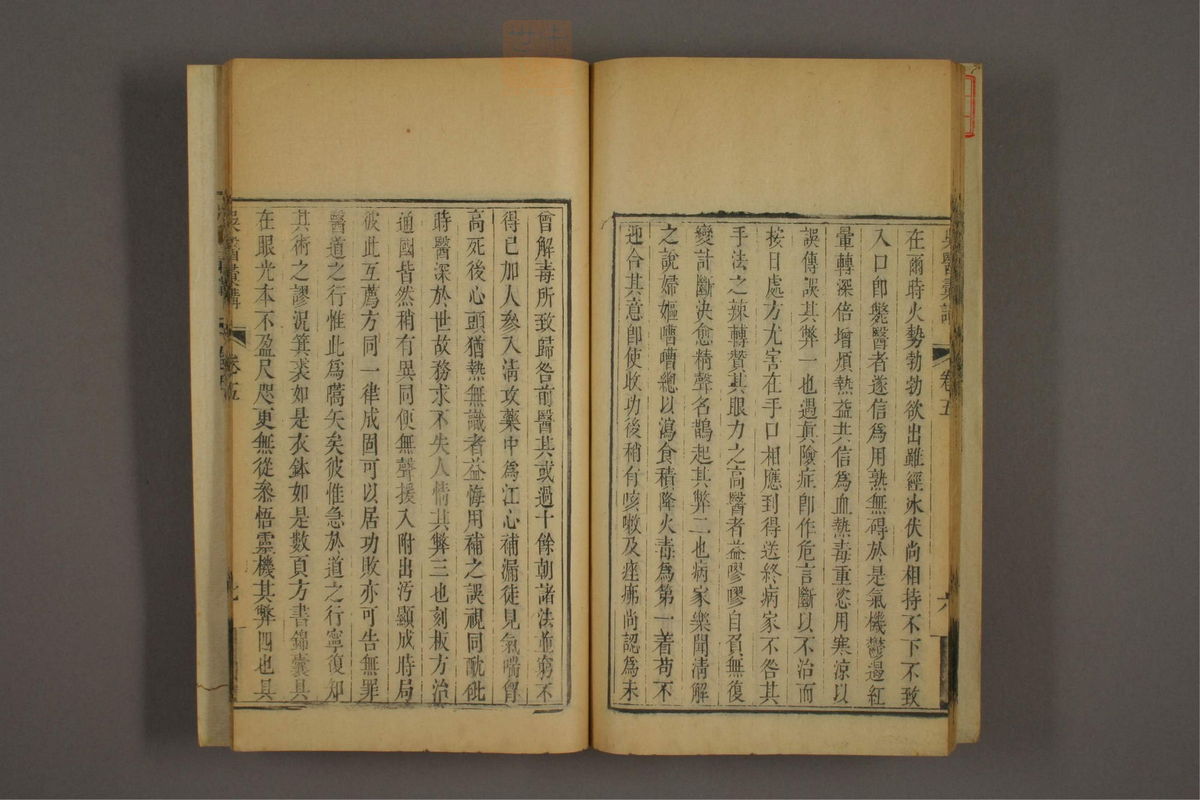 吳醫彙講 卷五 六
在爾時火勢勃勃欲出雖經冰伏尚相持不下不致
入口卽斃醫者遂信爲用熟無碍於是氣機鬱遏紅
暈轉深倍增煩熱益共信爲血熱毒重恣用寒涼以
誤傳誤其弊一也遇眞險症卽作危言斷以不治而
按日處方尤害在手口相應到得送終病家不咎其
手法之辣轉贊其眼力之高醫者益嘐嘐自負無復
變計斷決愈精聲名鵲起其弊二也病家樂聞淸解
之說婦嫗嘈嘈總以瀉食積降火毒爲第一著苟不
迎合其意卽使收功後稍有咳嗽及痤疿尚認爲未
曾解毒所致歸咎前醫其或過十餘朝諸法並窮不
得已加人參入淸攻藥中爲江心補漏徒見氣喘胷
高死後心頭猶熱無識者益悔用補之誤視同酖砒
時醫深於世故務求不失人情其弊三也刻板方治
通國皆然稍有異同便無聲援入附出汚顯成時局
彼此互薦方同一律成固可以居功敗亦可告無罪
醫道之行惟此爲嚆矢矣彼惟急於道之行寧復知
其術之謬況箕裘如是衣鉢如是數頁方書錦囊具
在眼光本不盈尺咫更無從叅悟靈機其弊四也具
吳醫彙講 卷五 七